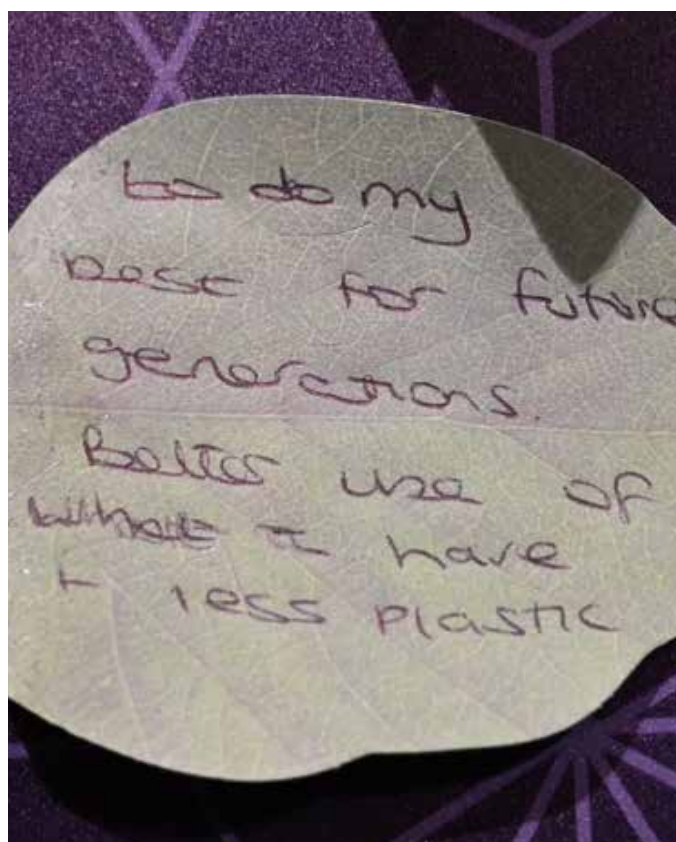 to do my
best for future
generations.
Better use of
what I have
+ less plastic